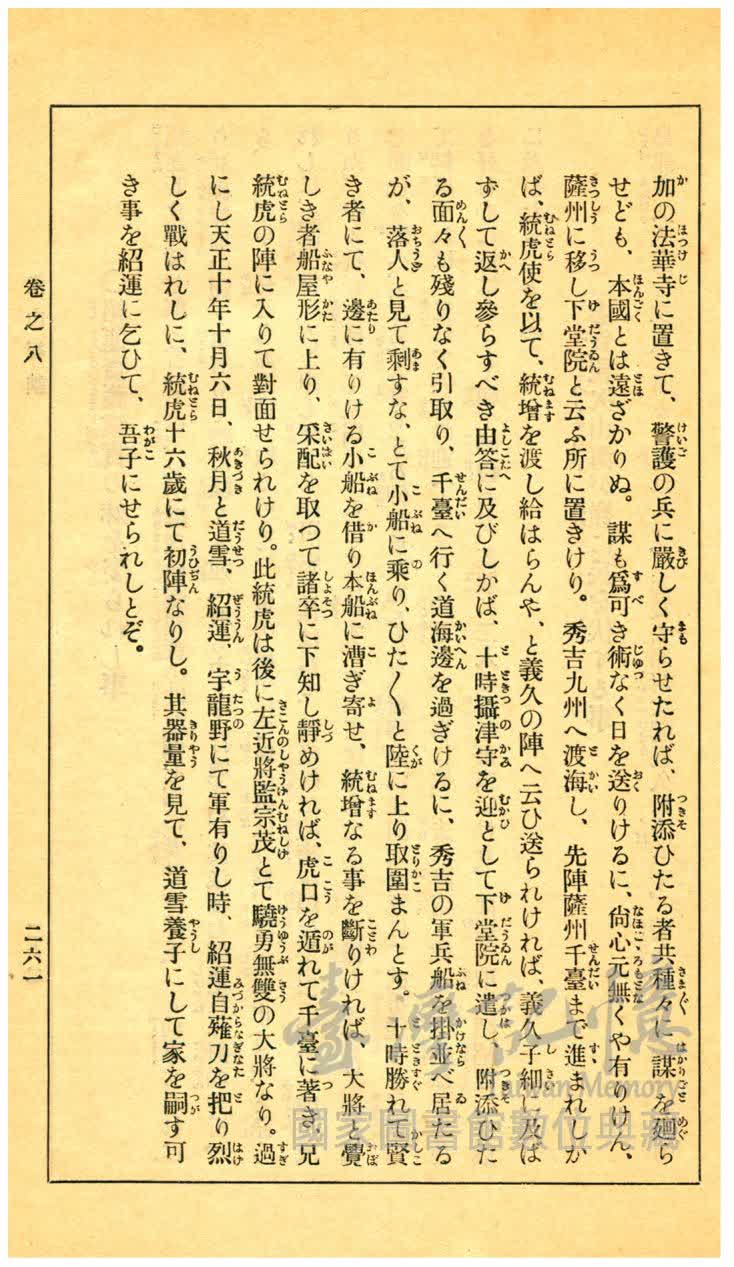 加の法華寺に置きて、警護の兵に嚴しく守らせたれば、附添ひたる者共種々に謀を廻ら
せども、本國とは遠ざかりぬ。謀も爲可き術なく日を送りけるに、尙心元無くや有りけん、
薩州に移し下堂院と云ふ所に置きけり。秀吉九州へ渡海し、先陣薩州千臺まで進まれしか
ば、統虎使を以て、統增を渡し給はらんや、と義久の陣へ云ひ送られければ、義久子細に及ば
ずして返し參らすべき由答に及びしかば、十時攝津守を迎として下堂院に遣し、附添ひた
る面々も殘りなく引取り、千臺へ行く道海邊を過ぎけるに、秀吉の軍兵船を掛並べ居たる
が、落人と見て剩すな、とて小船に乘り、ひた〱と陸に上り取圍まんとす。十時勝れて賢
き者にて、邊に有りける小船を借り本船に漕ぎ寄せ、統增なる事を斷りければ、大將と覺
しき者船屋形に上り、采配を取つて諸卒に下知し靜めければ、虎口を遁れて千臺に著き、兄
統虎の陣に入りて對面せられけり。此統虎は後に左近將監宗茂とて驍勇無雙の大將なり。過
にし天正十年十月六日、秋月と道雪、紹運、宇龍野にて軍有りし時、紹運自薙刀を把り烈
しく戰はれしに、統虎十六歲にて初陣なりし。其器量を見て、道雪養子にして家を嗣す可
き事を紹運に乞ひて、吾子にせられしとぞ。
卷之八
二六一
臺灣記憶
Taiwan Memory
國家圖書館數位典藏